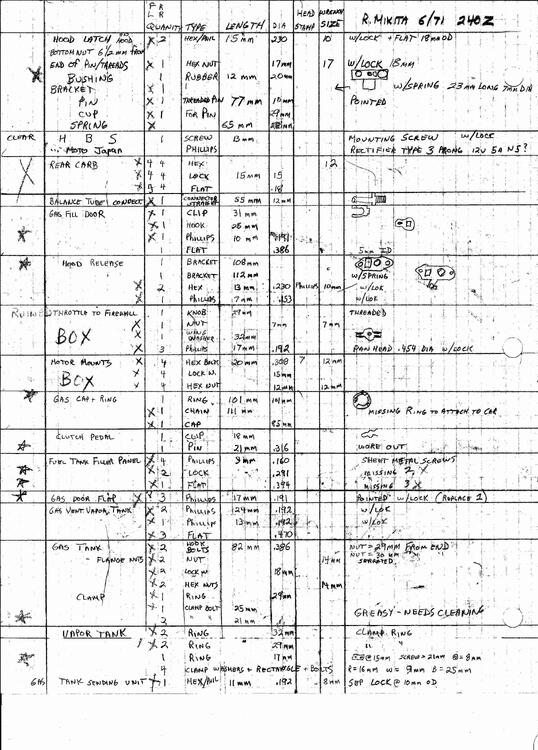 F R HEAD WRENCH R. MIKITA 6/71 240Z
L R
QUANTITY TYPE LENGTH DIA STAMP SIZE
HOOD LATCH HOOD X 2 HEX/PHIL 15mm .230 10 W/LOCK + FLAT 18mm OD
BOTTOM NUT 6 1/2 mm FROM
END OF PIN/THREADS X 1 HEX NUT 17mm 17 W/LOCK 18mm
BUSHING 1 RUBBER 12 mm 20mm
BRACKET X 1 W/SPRING 23mm LONG 7mm DIA
PIN X 1 THREADED PIN 77 mm 10mm POINTED
CUP X 1 FOR PIN 29mm
SPRING X 1 65 mm 28mm
CLEAR H B S 1 SCREW 13mm MOUNTING SCREW W/LOCK
... Moto Japan PHILLIPS RECTIFIER TYPE 3 PRONG 12V 5A NS?
REAR CARB X 4 4 HEX 12
X 4 4 LOCK 15mm .15
X 4 4 FLAT .18
BALANCE TUBE CONNECT X 1 CONNECTOR STRAIGHT 55 mm 12mm
GAS FILL DOOR X 1 CLIP 31 mm
X 1 HOOK 25 mm
X 1 Phillips 10 mm .191
1 FLAT .386 5mm ID
HOOD RELEASE 1 BRACKET 108mm
1 BRACKET 112mm W/SPRING
X 2 HEX 13mm .230 Phillips 10mm W/LOK
X 1 Phillips 17mm .153 W/LOK
RUINED THROTTLE TO FIREWALL 1 KNOB 27mm THREADED
BOX 1 NUT 7mm 7mm
X 1 WING WASHER 32mm
X 3 Phillips 17mm .192 PAN HEAD .454 DIA W/LOCK
MOTOR MOUNTS X 4 HEX BOLT 20mm .308 7 12mm
BOX X 4 LOCK W. 15mm
X 4 HEX NUT 12mm 12mm
GAS CAP + RING 1 RING 101mm 101mm
X 1 CHAIN 111 mm MISSING RING TO ATTACH TO CAR
X 1 CAP 85mm
CLUTCH PEDAL 1 CLIP 18mm
1 PIN 21mm .316 WORE OUT
FUEL TANK FILLER PANEL X 4 Phillips 9mm .160 SHEET METAL SCREWS
X 2 LOCK .291 MISSING 2 X
X 1 FLAT .394 MISSING 3 X
GAS DOOR FLAP X 3 Phillips 17mm .191 POINTED W/LOCK (REPLACE 1)
GAS VENT VAPOR TANK X 2 Phillips 124mm .192 W/LOK
X 1 Phillip 13mm .192 W/LOK
X 3 FLAT .470
GAS TANK X 2 HOOK BOLTS 82mm .386 NUT = 29mm FROM END
FLANGE NUTS X 2 NUT 14mm
X 2 LOCK W 18mm
X 2 HEX NUTS 14mm
CLAMP X 1 RING 29mm
X 1 CLAMP BOLT 25mm GREASY - NEEDS CLEANING
2 " " 21mm
VAPOR TANK X 2 RING 32mm CLAMP RING
X 2 RING 29mm "
1 RING 17mm @15mm SCREW=21mm B=8mm
4 CLAMP WASHERS + RECTANGLE + BOLTS R=16mm W= 9mm B=25mm
GAS TANK SENDING UNIT X 1 HEX/PHIL 11mm .192 8mm SEP LOCK @ 10mm OD